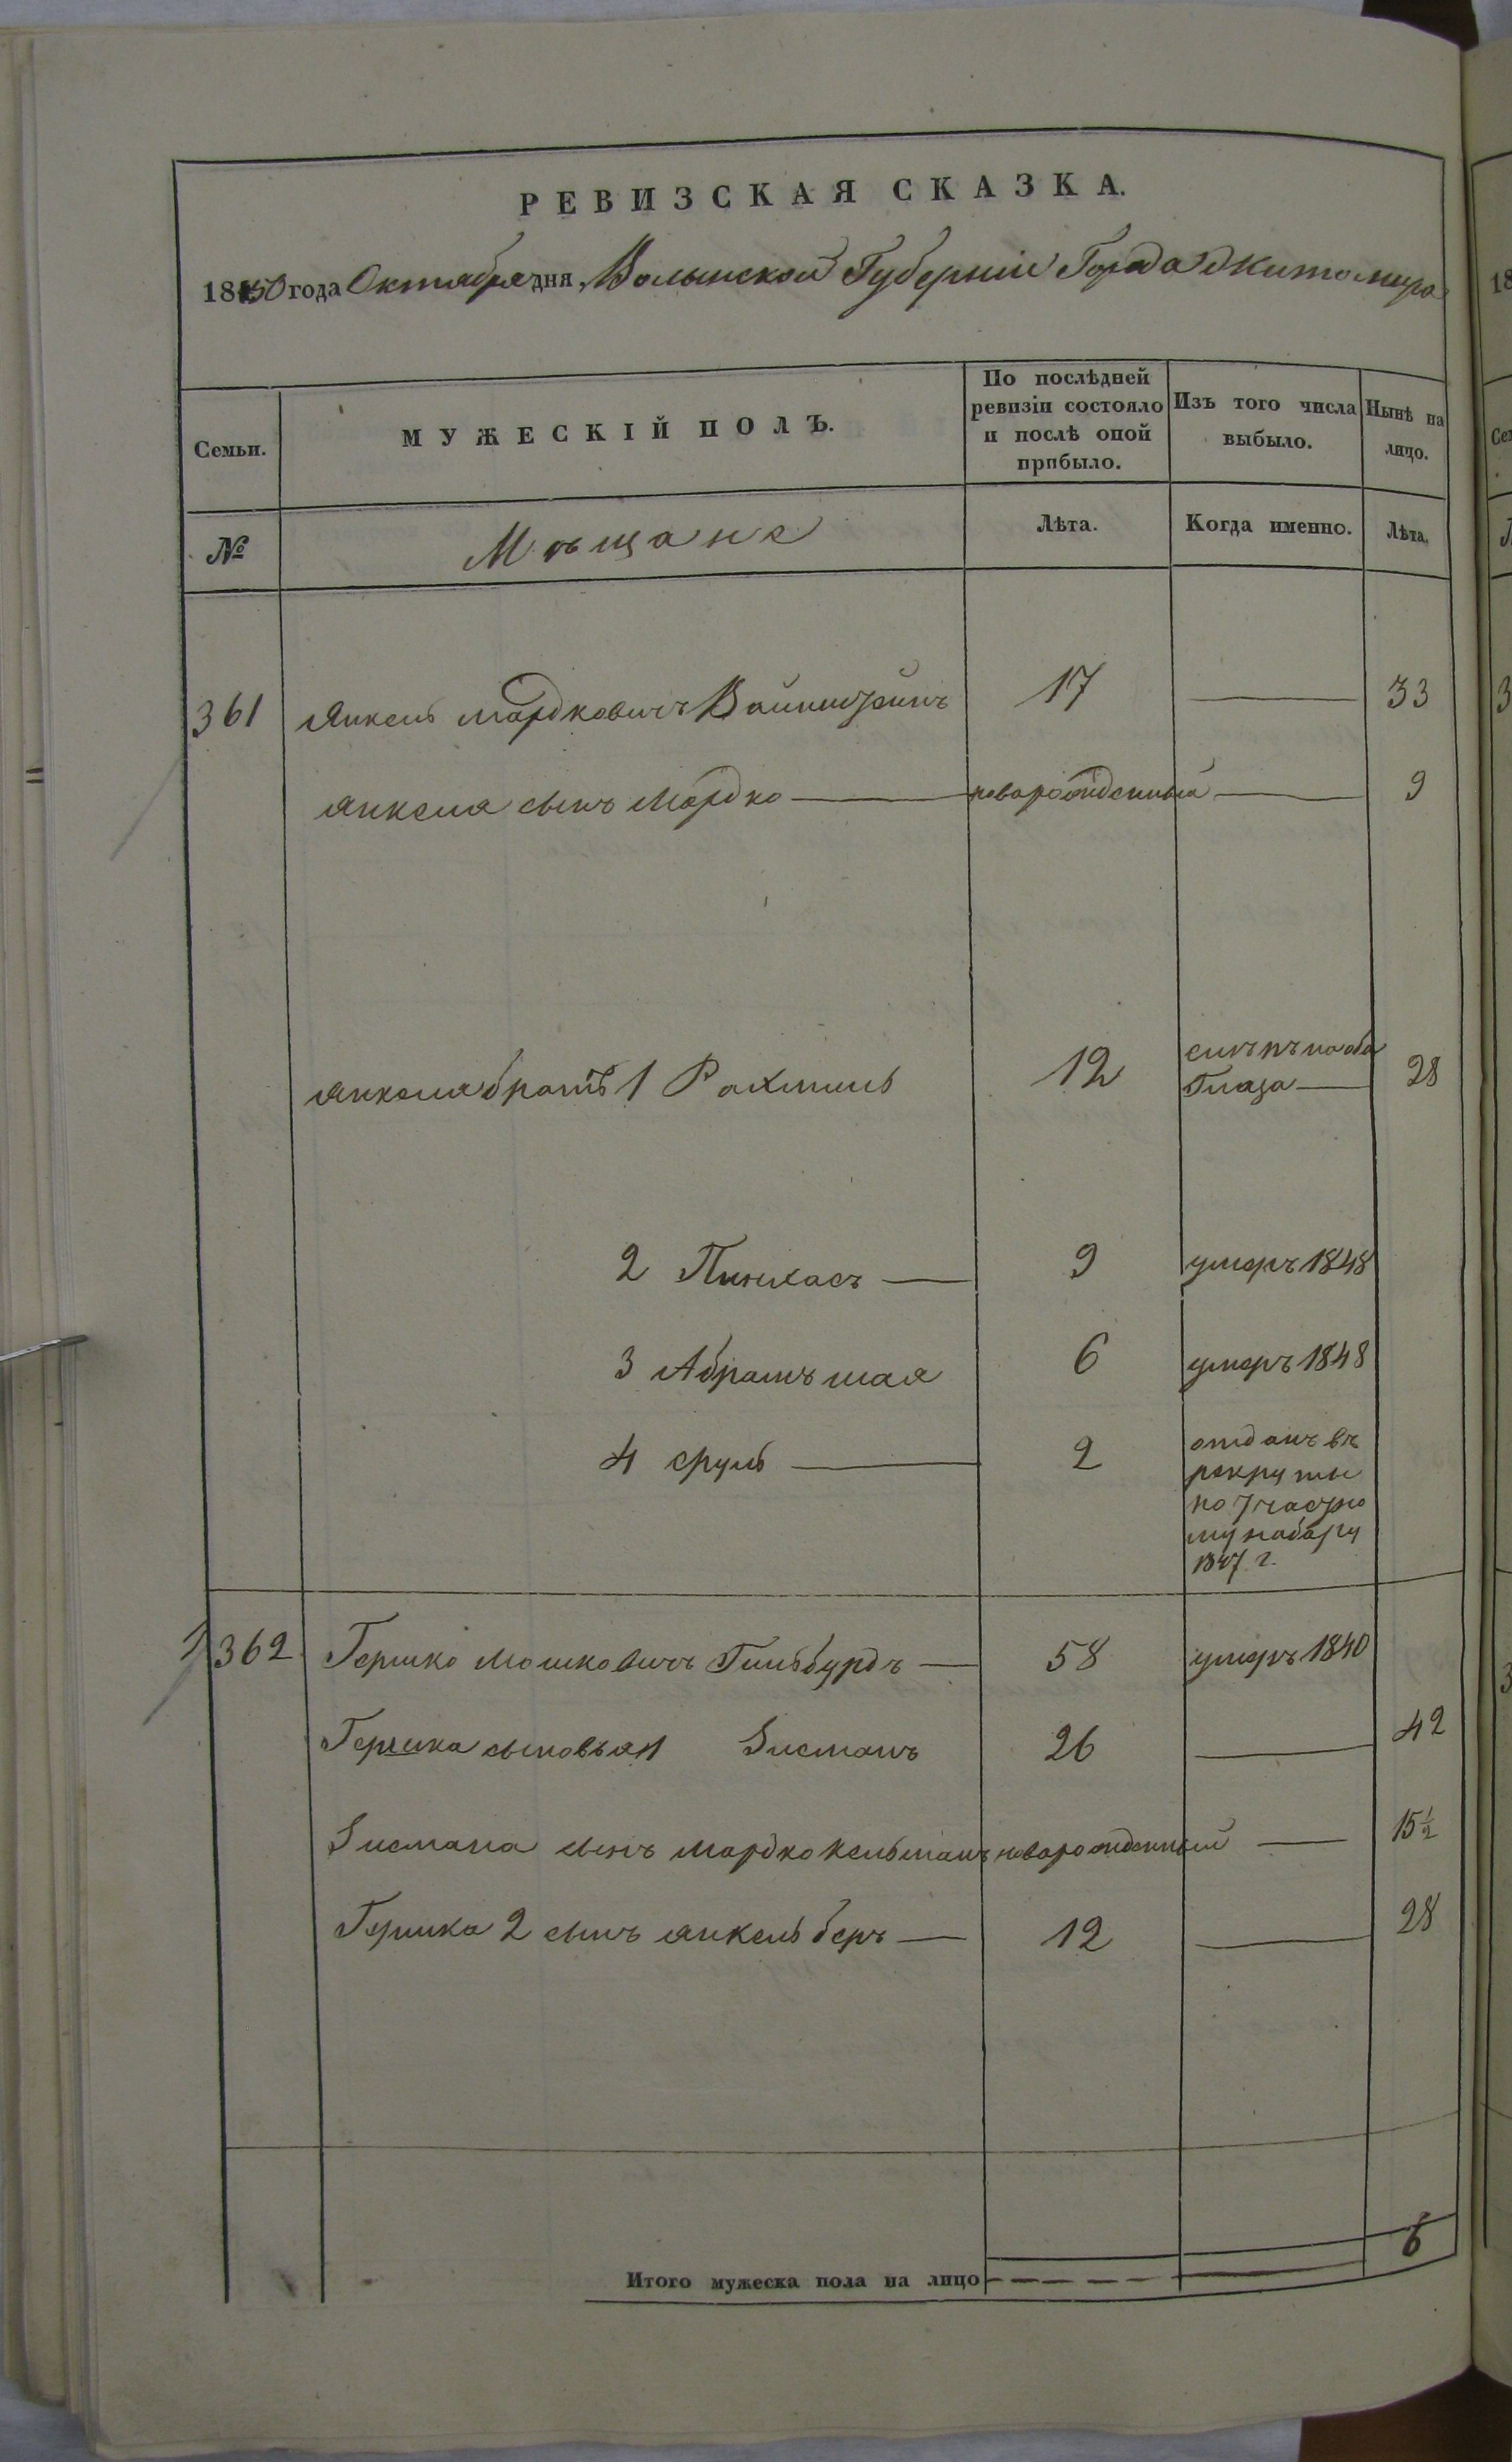 РЕВИЗСКАЯ СКАЗКА.
1850 года Октября дня, Волынской Губернии Города Житомира
Семьи. МУЖЕСКІЙ ПОЛЪ. По послѣдней ревизіи состояло и послѣ оной прибыло. Изъ того числа выбыло. Нынѣ на лицо.
№ Мѣщане Лѣта. Когда именно. Лѣта.
361 Янкель Мордковичъ Вайнштейнъ 17 — 33
Янкеля сынъ Мордко — новорожденный — 9
Янкеля братъ 1 Рахмиль 12 слѣпъ на оба Глаза — 28
2 Пинхасъ — 9 умеръ 1848
3 Абрамъ шая 6 умеръ 1848
4 Сруль — 2 отданъ въ
рекруты
по 7 частно
му набору
1847 г.
362 Гершко Мошковичъ Гинзбургъ — 58 умеръ 1840
Гершка сыновья 1 Зисманъ 26 — 42
Зисмана сынъ Мордко Кельманъ новорожденный — 15½
Гершка 2 сынъ Янкель беръ — 12 — 28
Итого мужеска пола на лицо 6